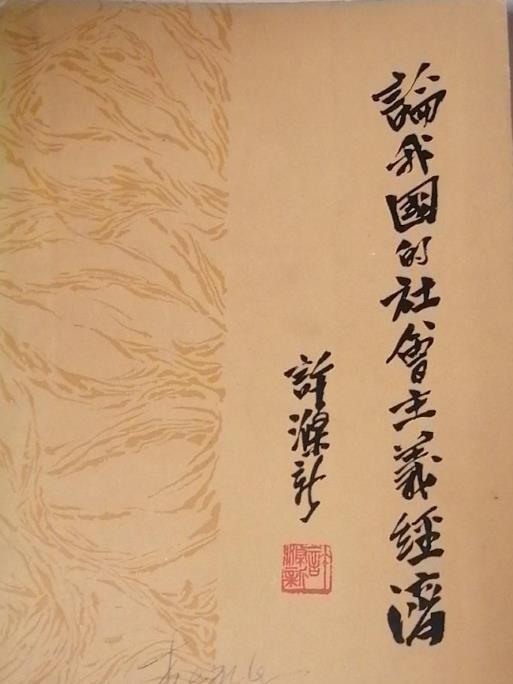 論我國的社會主義經濟
許滌新
許滌新